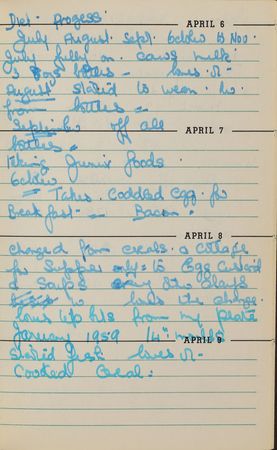 Diet - Progess
APRIL 6
July August. Sept. October to Nov.
July fully on cows milk
3 8ozs bottles - loves it -
August started to wean her
from bottles -
September off all
APRIL 7
bottles -
taking Junior foods
October
- Takes Coddled Egg for
Breakfast - Bacon.
APRIL 8
changed from cereals & cottage
for Supper only - to Egg Custard
& Soups every other days
loves the change.
loves tip bits from my plate
January 1959 14 months
APRIL 9
started fresh loves it -
Cooked Cereal.